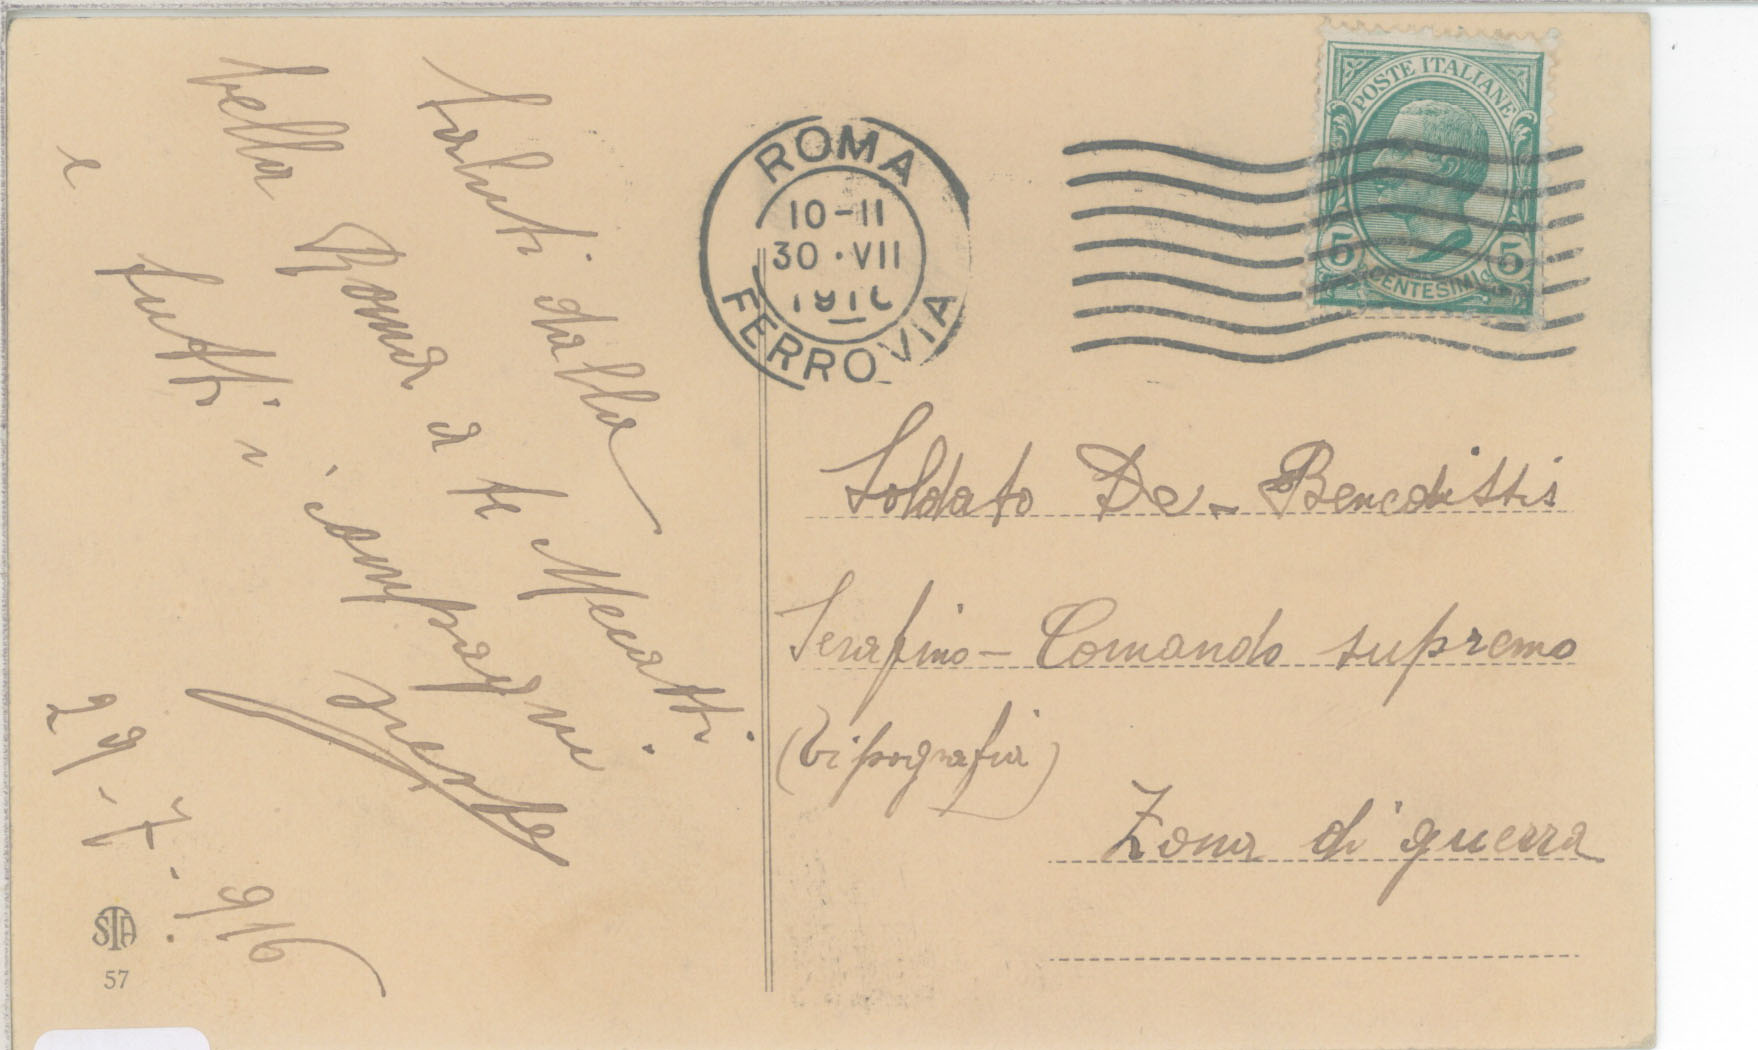 Saluti dalla
bella Roma a te Mecatti.
e tutti i compagni.
29-7-916
STA
57
ROMA
10-11
30·VII
1916
FERROVIA
POSTE ITALIANE
5 CENTESIMI 5
Soldato De-Benedittis
Serafino-Comando supremo
(tipografia)
Zona di guerra